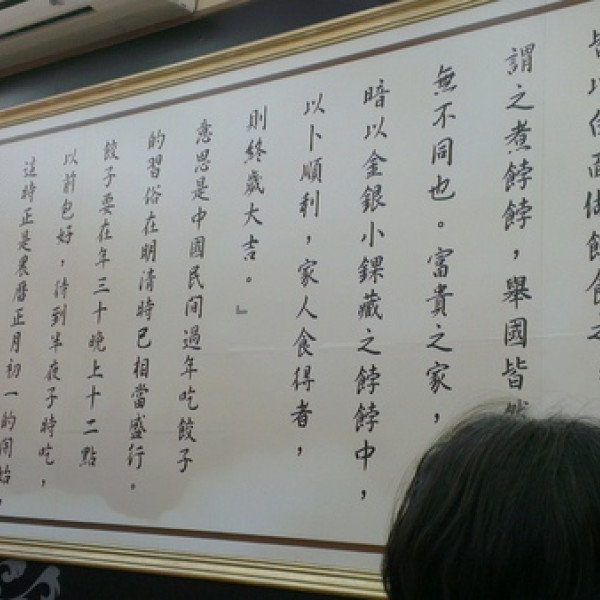 皆以白面做餃食之，
謂之煮餑餑，舉國皆然
無不同也。富貴之家，
暗以金銀小錁藏之餑餑中，
以卜順利，家人食得者，
則終歲大吉。』
意思是中國民間過年吃餃子
的習俗在明清時已相當盛行。
餃子要在年三十晚上十二點
以前包好，待到半夜子時吃，
這時正是農曆正月初一的開始，